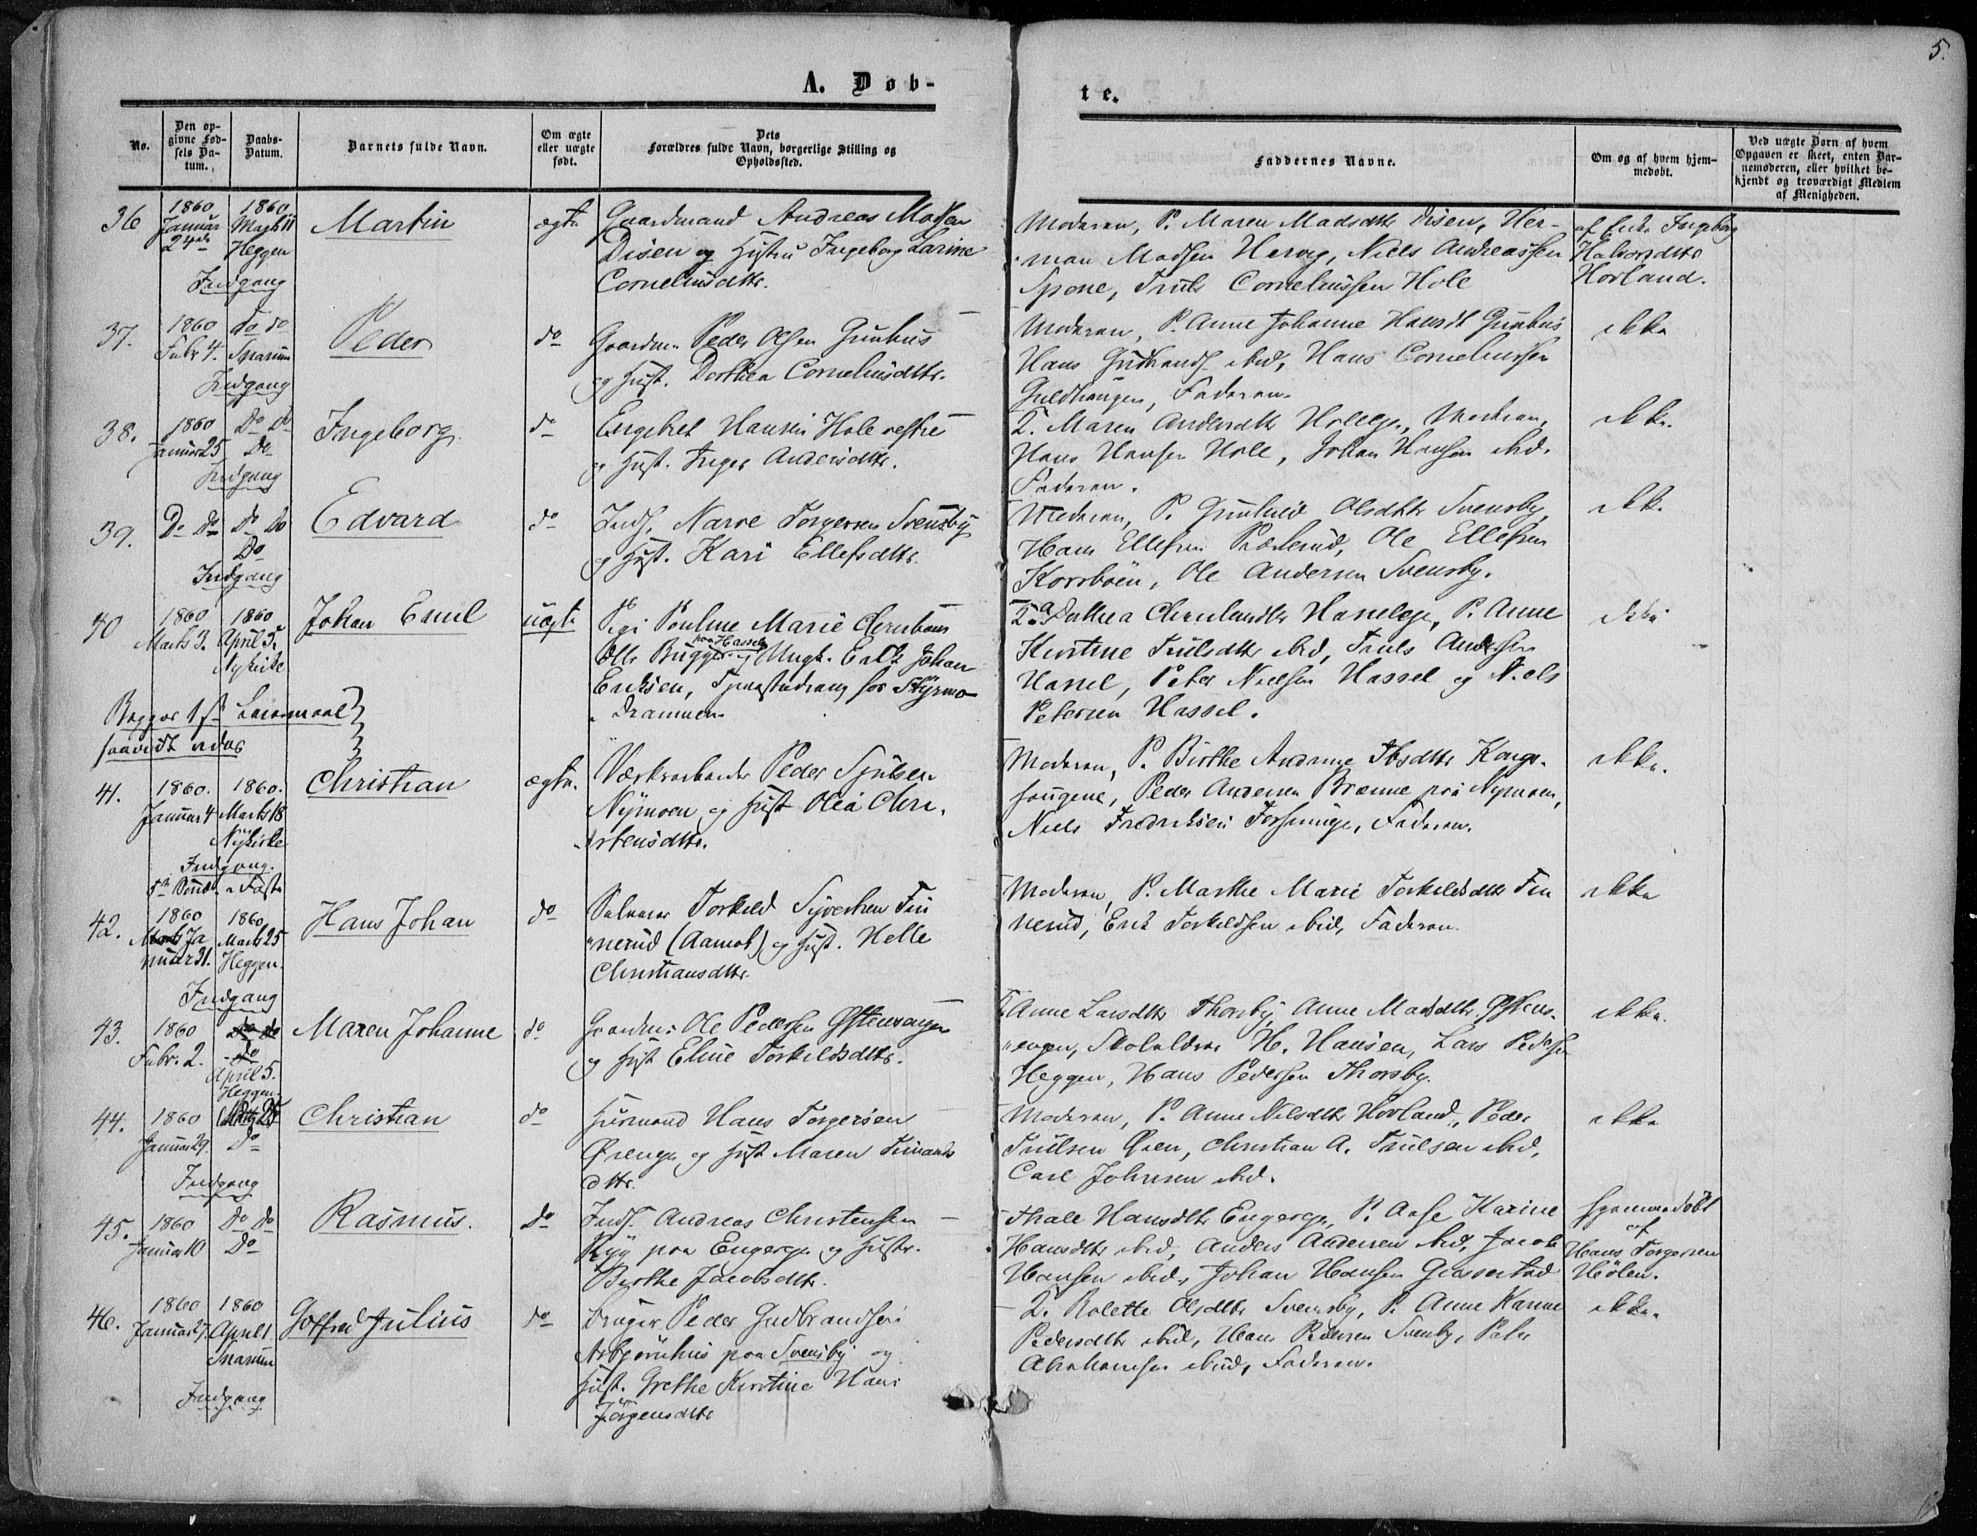 5.
A. Døb-
te.
No.
Den op-
givne Fød-
sels Da-
tum.
Daabs-
Datum.
Barnets fulde Navn.
Om ægte
eller uægte
født.
Dets
Forældres fulde Navn, borgerlige Stilling og
Opholdssted.
Faddernes Navne.
Om og af hvem hjem-
medøbt.
Ved uægte Børn af hvem
Opgaven er skeet, enten Bar-
nemoderen, eller hvilket be-
kjendt og troværdigt Medlem
af Menigheden.
36
1860
Januar
24de
1860
Marts 11
Heggen
Indgang
Martin
ægte
Gaardmand Andreas Madsen
Disen og Hustru Ingeborg Larine
Corneliusdtr.
Moderen, P. Maren Madsdtr Disen, Her-
man Madsen Hervig, Niels Andreassen
Spone, Truls Corneliussen Hole
af Enke Ingeborg
Halvorsdtr
Hovland.
37.
1860
Febr 4.
Do do
Snarum
Indgang
Peder
do
Gaardm. Peder Olsen Gunhus
og Hust. Dorthea Corneliusdtr.
Moderen, P. Anne Johanne Hansdt Gunhus
Hans Gudbrands. ibid, Hans Corneliussen
Guldhaugen, Faderen.
ikke
38.
1860
Januar 25
Do Do
Do
Indgang
Ingeborg
do
Engebret Hansen Hole vestre
og Hust. Inger Andersdtr.
T. Maren Andersdtr Hollege, Moderen,
Hans Hansen Hole, Johan Hansen ibid.
Faderen.
ikke.
39.
Do Do
Do Do
Do
Indgang
Edvard
do
Inds. Narve Torgersen Svensby
og Hust. Kari Ellefsdtr.
Moderen, P. Gunhild Olsdtr Svensby,
Hans Ellefsen, Ole Ellefsen
Korsbøen, Ole Andersen Svensby.
ikke.
40
1860
Marts 3.
1860
April 5.
Nykirke
Johan Emil
uægte
Pige Pouline Marie
paa Hassel
og Ungk. Erik Johan
Eriksen, Tjenestedreng for
Drammen.
Begges 1ste Leiermaal
saavidt vides
T. Dorthea Hanelege, P. Anne
Kirstine Trulsdtr ibid, Truls Andersen
Hassel, Peter Nielsen Hassel og Niels
Petersen Hassel.
ikke
41.
1860.
Januar 4
1860.
Marts 18
Nykirke
Indgang.
Christian
ægte.
Værksarbeider Peder Sjulsen
Nymoen og Hust Olea Chri-
stensdtr.
Moderen, P. Birthe Andrine Ibsdtr Konge-
haugene, Peder Andersen Brænne paa Nymoen,
Niels Fredriksen, Faderen.
ikke.
42.
1860
Ja
nuar 31.
1860
Marts 25
Heggen.
Indgang
Hans Johan
do
Selveier Torkild Syversen Fin
nerud (Aamot) og Hust. Helle
Christiansdtr.
Moderen, P. Marthe Marie Torkildsdtr Fin
nerud, Erik Torkildsen ibid, Faderen.
ikke
43.
1860
Febr. 2.
Do do
Do
April 5.
Heggen
Maren Johanne
do
Gaardm. Ole Pedersen Østensengen
og Hust Eline Torkildsdtr.
T. Anne Larsdtr Thorsby, Anne Madsdtr Østens-
engen, Skolelærer H. Hansen, Lars Pedersen
Heggen, Hans Pedersen Thorsby.
ikke.
44.
1860
Januar 29.
Marts 25
Do
Indgang
Christian
do
Husmand Hans Torgersen
Ørenge og Hust Maren
dtr.
Moderen, P. Anne Nilsdtr Hovland, Peder
Trulsen Øien, Christian A. Trulsen ibid,
Carl Johnsen ibid.
ikke
45.
1860
Januar 10
Do Do
Do
Rasmus.
Do
Inds. Andreas Christensen
Ryg paa Engerge og Hustr.
Birthe Jacobsdtr.
Thale Hansdtr Engerge, P. Aase Karine
Hansdtr ibid, Anders Andersen ibid, Jacob
Hansen ibid, Johan Hansen
hjemmedøbt
af
Hans Torgersen
Hølen.
46.
1860
Januar 27
1860
April 1
Snarum
Indgang
Gotfred Julius
do
Bruger Peder Gudbrandsen
Asbjørnhus paa Svensby og
Hust. Grethe Kirstine Hans
Jørgensdtr
T. Rolette Olsdtr Svensby, P. Anne Karine
Pedersdtr ibid, Hans Pedersen Svensby, Peter
Abrahamsen ibid, Faderen.
ikke.